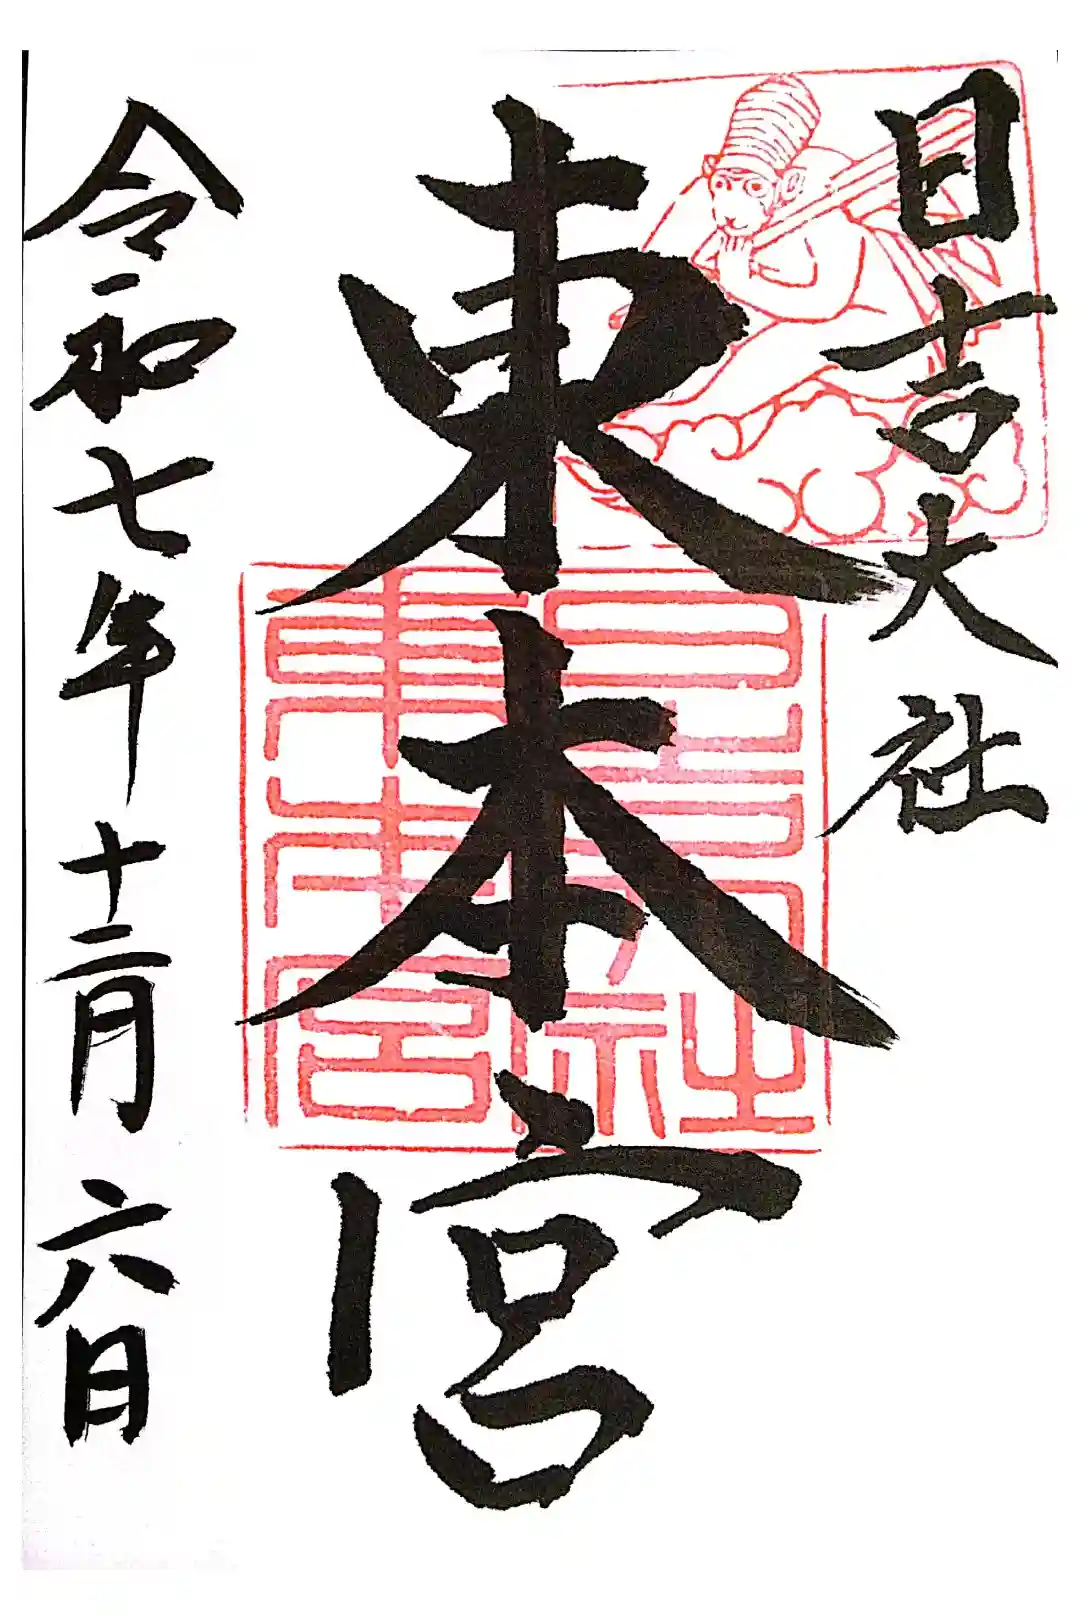 日吉大社
東本宮
令和七年十二月六日
日吉大社
東本宮